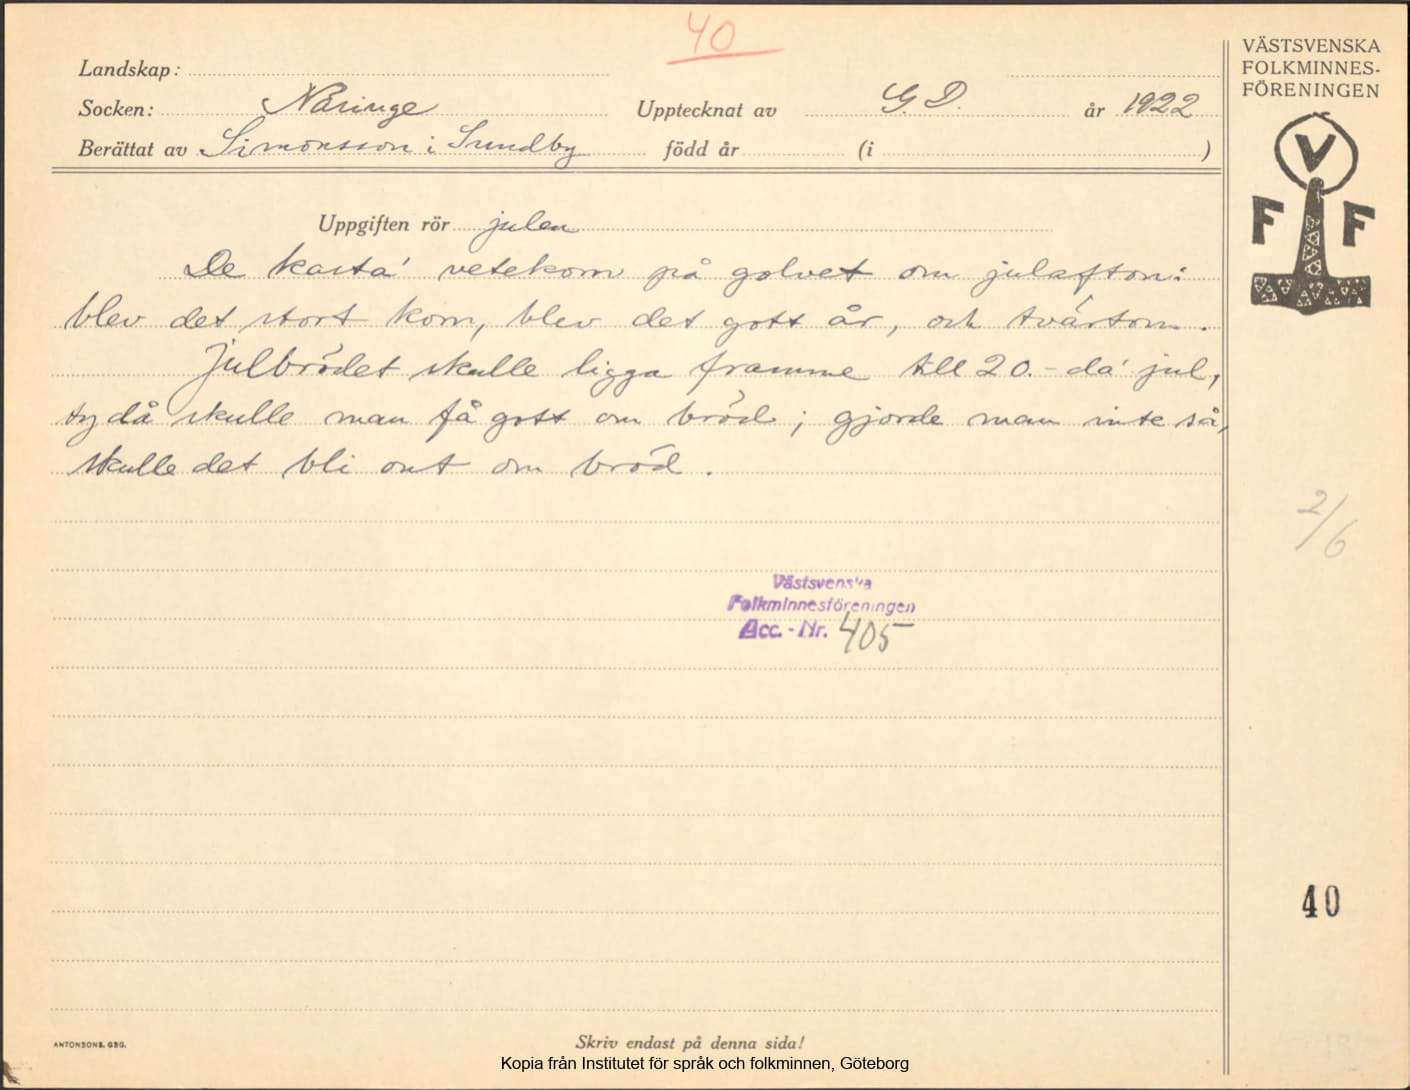 40
Landskap:
Socken: Näringe Upptecknat av G. D. år 1922
Berättat av Simonsson i Sundby född år (i )
VÄSTSVENSKA
FOLKMINNES-
FÖRENINGEN
V
F F
Uppgiften rör julen
De kasta' vetekorn på golvet om julafton:
blev det stort korn, blev det gott år, och tvärtom.
Julbrödet skulle ligga framme till 20.-da' jul,
ty då skulle man få gott om bröd; gjorde man inte så,
skulle det bli ont om bröd.
2/6
Västsvenska
Folkminnesföreningen
Acc.-Nr. 405
40
ANTONSONS, GBG.
Skriv endast på denna sida!
Kopia från Institutet för språk och folkminnen, Göteborg